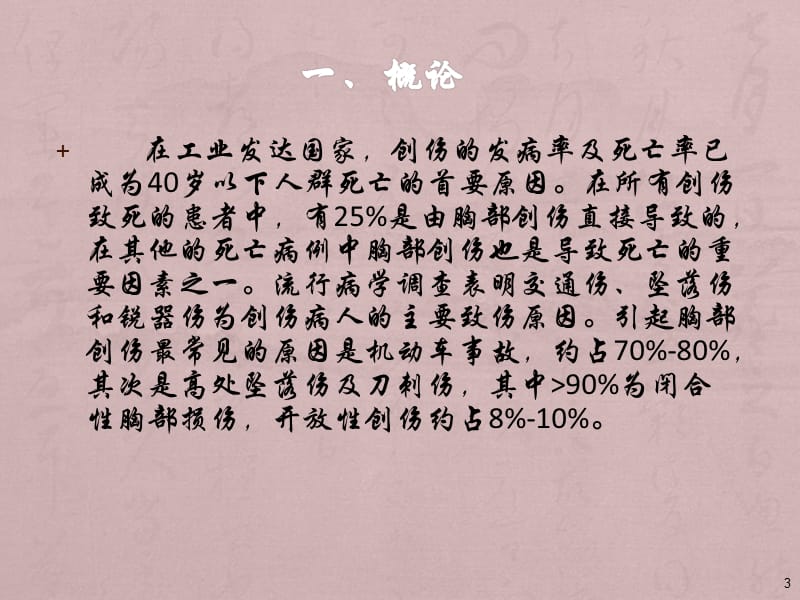 一、概论
+ 在工业发达国家，创伤的发病率及死亡率已
成为40岁以下人群死亡的首要原因。在所有创伤
致死的患者中，有25%是由胸部创伤直接导致的，
在其他的死亡病例中胸部创伤也是导致死亡的重
要因素之一。流行病学调查表明交通伤、坠落伤
和锐器伤为创伤病人的主要致伤原因。引起胸部
创伤最常见的原因是机动车事故，约占70%-80%，
其次是高处坠落伤及刀刺伤，其中>90%为闭合
性胸部损伤，开放性创伤约占8%-10%。
3